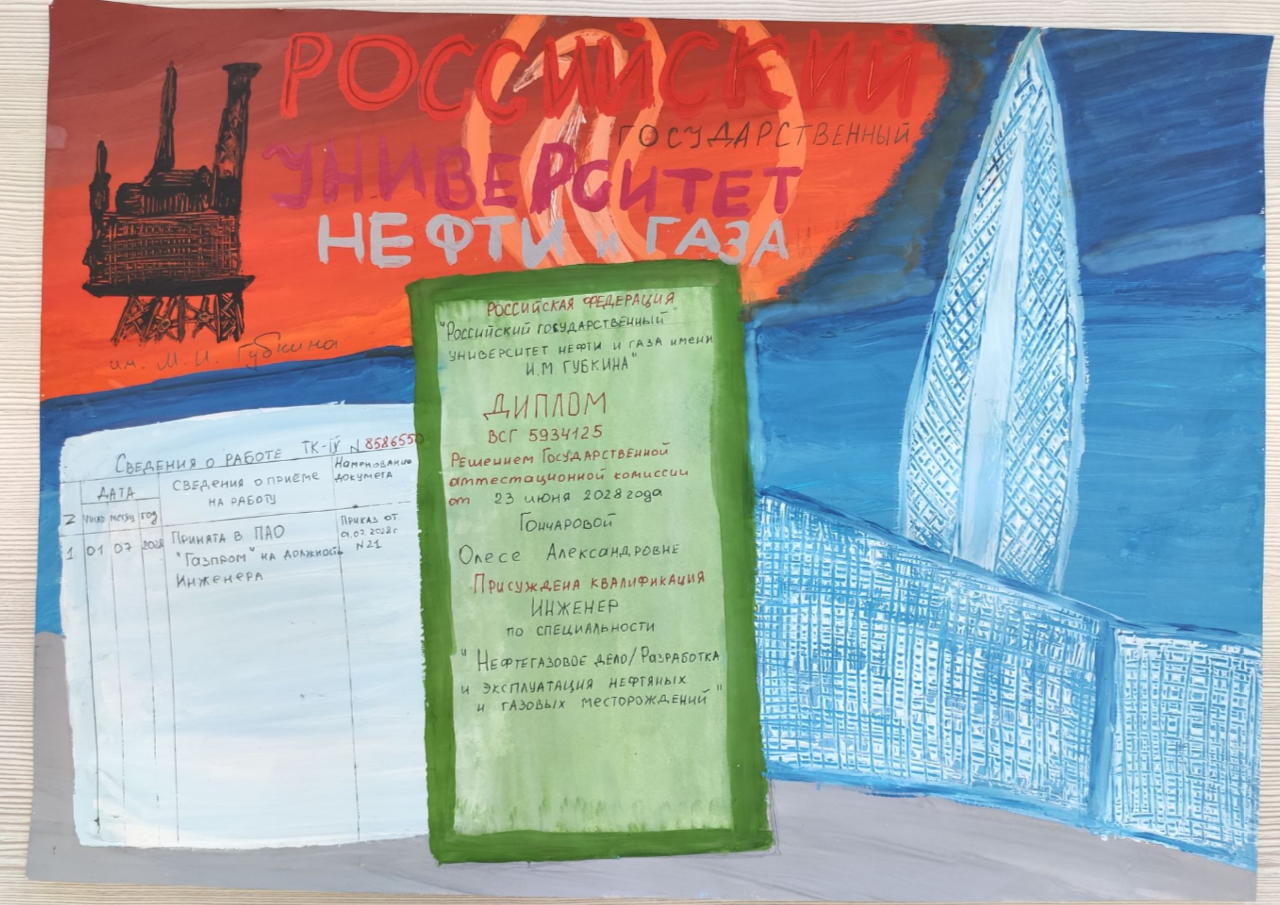 РОССИЙСКИЙ
ГОСУДАРСТВЕННЫЙ
УНИВЕРСИТЕТ
НЕФТИ и ГАЗА
им. М.И. Губкина
СВЕДЕНИЯ О РАБОТЕ ТК-IV N 8586550
ДАТА
СВЕДЕНИЯ О ПРИЁМЕ
НА РАБОТУ
Наименование
документа
число месяц год
1 01 07 2028
ПРИНЯТА В ПАО
"Газпром" НА ДОЛЖНОСТЬ
ИНЖЕНЕРА
ПРИКАЗ ОТ
01.07.2028 г
N21
РОССИЙСКАЯ ФЕДЕРАЦИЯ
"РОССИЙСКИЙ ГОСУДАРСТВЕННЫЙ
УНИВЕРСИТЕТ НЕФТИ И ГАЗА ИМЕНИ
И.М ГУБКИНА"
ДИПЛОМ
ВСГ 5934125
Решением Государственной
аттестационной комиссии
от 23 июня 2028 года
Гончаровой
Олесе Александровне
ПРИСУЖДЕНА КВАЛИФИКАЦИЯ
ИНЖЕНЕР
ПО СПЕЦИАЛЬНОСТИ
"НЕФТЕГАЗОВОЕ ДЕЛО/РАЗРАБОТКА
И ЭКСПЛУАТАЦИЯ НЕФТЯНЫХ
И ГАЗОВЫХ МЕСТОРОЖДЕНИЙ"